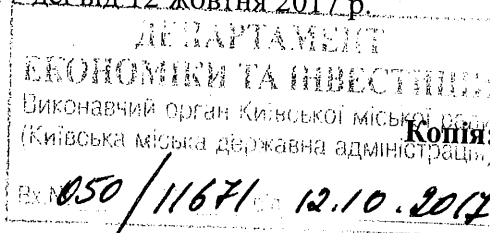 від 12 жовтня 2017 р.
ДЕПАРТАМЕНТ
ЕКОНОМІКИ ТА ІНВЕСТИЦІЙ
Виконавчий орган Київської міської ради
Копія:
(Київська міська державна адміністрація)
Вх.№ 050/11671 від 12.10.2017